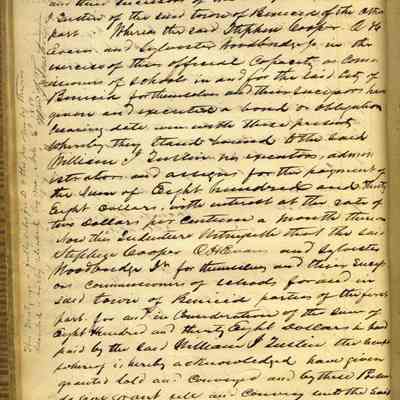 and their successors
I Tustin of the said town of Benicia of the other
part Whereas the said Stephen Cooper O H
Evans and Sylvester Woodbridge Jr in the
exercise of their official Capacity as Com
issioners of schools in and for the said City of
Benicia for themselves and their successors have
given and executed a bond or obligation
bearing date even with these present
whereby they stand bound to the said
William I Tustin his executors, admin
istrators and assigns for the payment of
the sum of Eight hundred and thirty
Eight dollars, with interest at the rate of
two dollars per Centum a month thereon
Now this Indenture Witnesseth that the said
Stephen Cooper O H Evans and Sylvester
Woodbridge Jr for themselves and their success
ors Commissioners of schools for and in
said town of Benicia parties of the first
part for and in Consideration of the sum of
Eight Hundred and thirty Eight dollars to hand
paid by the said William I Tustin the receipt
whereof is hereby acknowledged have given
granted sold and Conveyed and by these Presen
do give grant sell and Convey unto the said